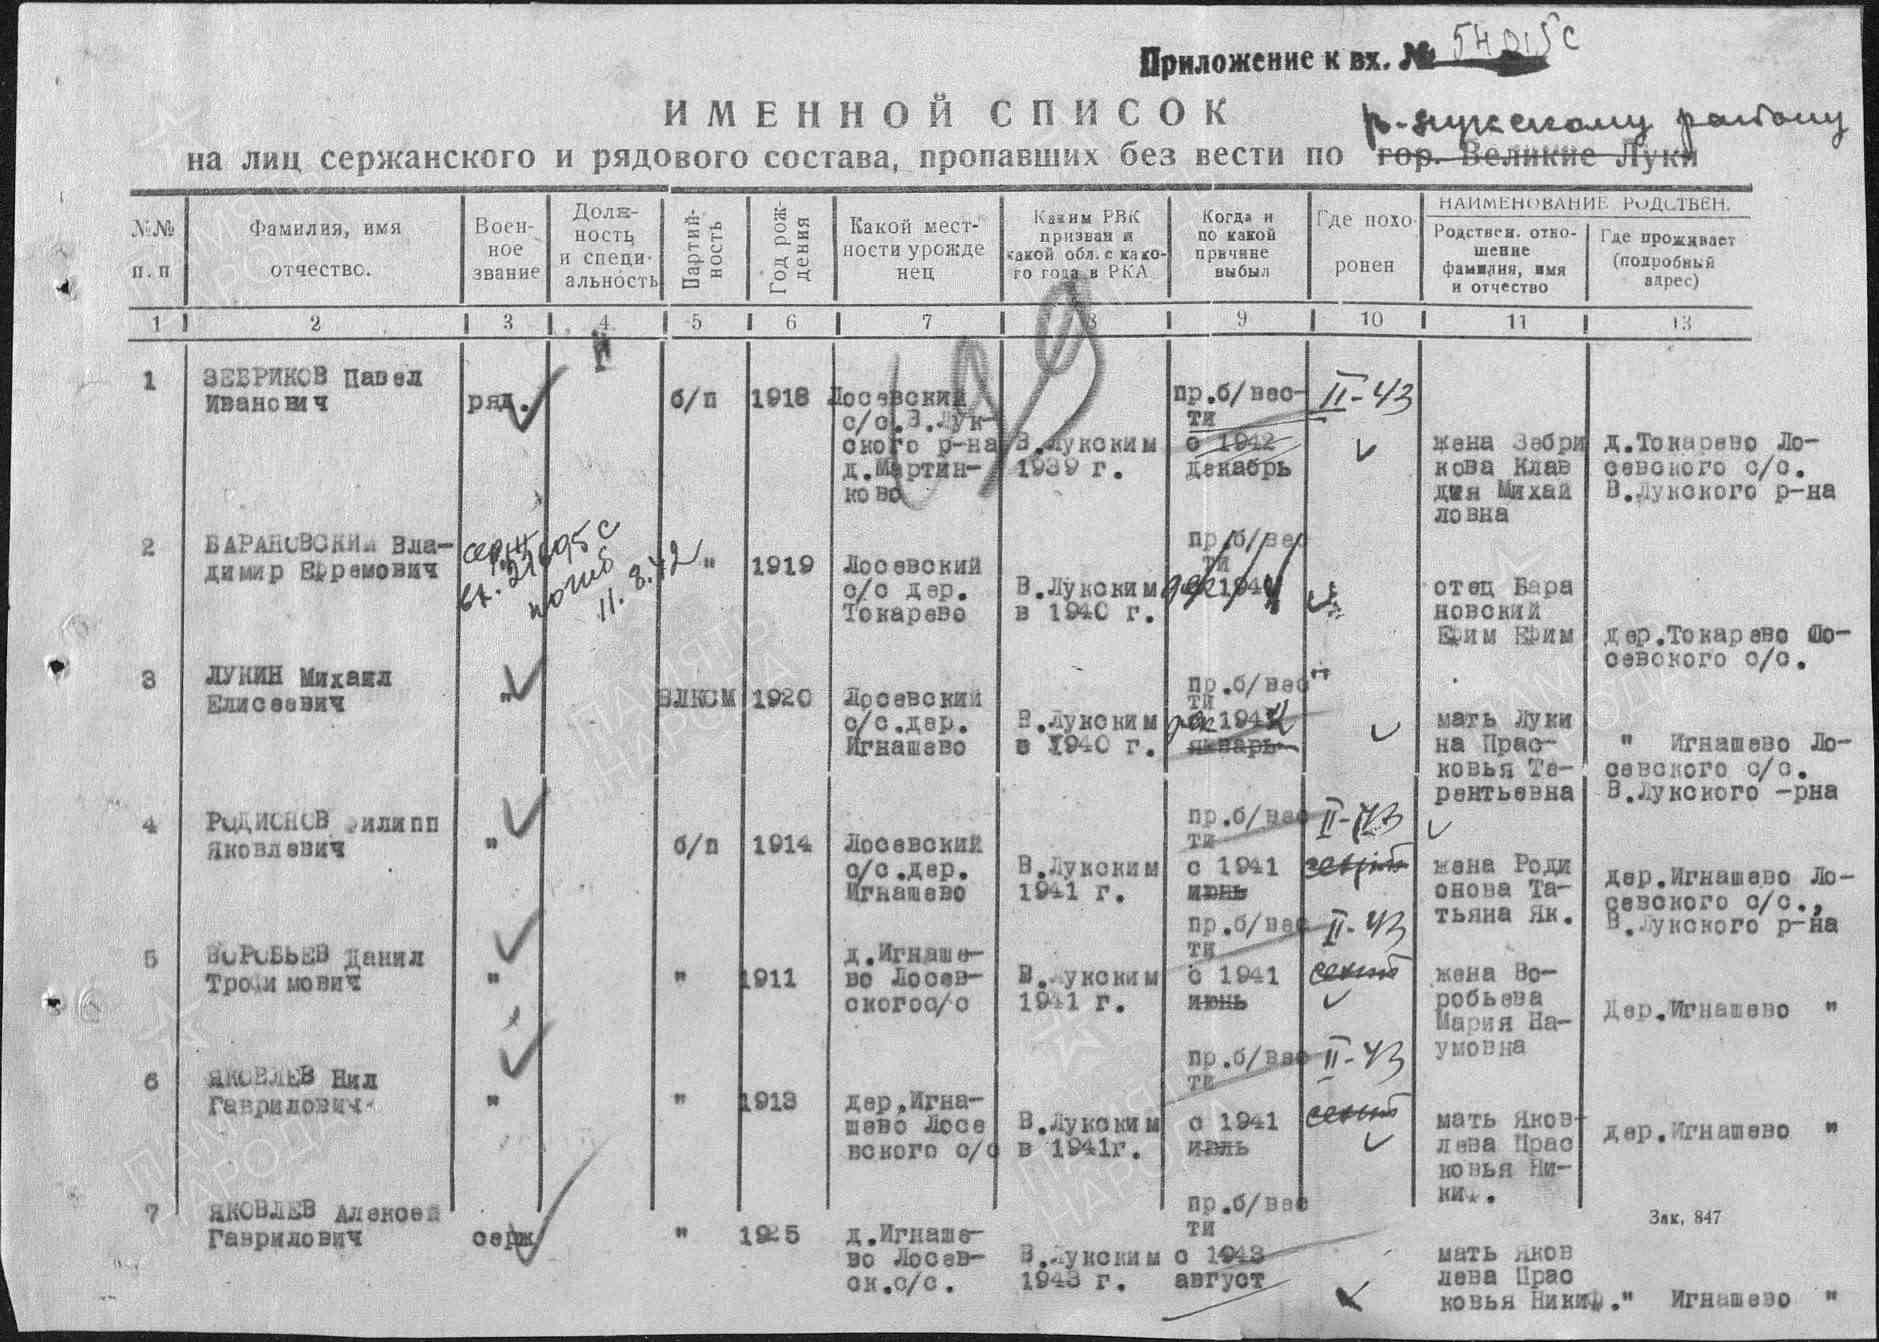 Приложение к вх. № 54015с
ИМЕННОЙ СПИСОК
на лиц сержанского и рядового состава, пропавших без вести по гор. Великие Луки
В-Лукскому району
№№ п. п
Фамилия, имя отчество.
Воен- ное звание
Долж- ность и специ- альность
Партий- ность
Год рож- дения
Какой мест- ности урожде нец
Каким РВК призван и какой обл. с како- го года в РКА
Когда и по какой причине выбыл
Где похо- ронен
НАИМЕНОВАНИЕ РОДСТВЕН.
Родствен. отно- шение фамилия, имя и отчество
Где проживает (подробный адрес)
1 2 3 4 5 6 7 8 9 10 11 13
1
ЗЕБРИКОВ Павел
Иванович
ряд.
б/п
1918
Лосевский
с/с.В.Лук-
ского р-на
д.Мартин-
ково
В.Лукским
1939 г.
пр.б/вес-
ти
с 1942
декабрь
II-43
жена Зебри
кова Клав
дия Михай
ловна
д.Токарево Ло-
севского с/с.
В.Лукского р-на
2
БАРАНОВСКИЙ Вла-
димир Ефремович
серж
вх. 21605с
погиб
11.8.42
"
1919
Лосевский
с/с дер.
Токарево
В.Лукским
в 1940 г.
пр/б/вес
ти
отец Бара
новский
Ефим Ефим
дер.Токарево Ло-
севского с/с.
3
ЛУКИН Михаил
Елисеевич
"
ВЛКСМ
1920
Лосевский
с/с.дер.
Игнашево
В.Лукским
в 1940 г.
пр.б/вес
ти
январь
мать Луки
на Прас-
ковья Те-
рентьевна
" Игнашево Ло-
севского с/с.
В.Лукского -рна
4
РОДИОНОВ Филипп
Яковлевич
"
б/п
1914
Лосевский
с/с.дер.
Игнашево
В.Лукским
1941 г.
пр.б/вес
ти
с 1941
июнь
II-43
жена Роди
онова Та-
тьяна Як.
дер.Игнашево Ло-
севского с/с.,
В.Лукского р-на
5
ВОРОБЬЕВ Данил
Трофимович
"
"
1911
д.Игнаше-
во Лосев-
скогос/с
В.Лукским
1941 г.
пр.б/вес
ти
с 1941
июнь
II-43
жена Во-
робьева
Мария На-
умовна
Дер.Игнашево "
6
ЯКОВЛЕВ Нил
Гаврилович
"
"
1913
дер.Игна-
шево Лосе
вского с/с
В.Лукским
в 1941г.
пр.б/вес
ти
с 1941
июль
II-43
мать Яков-
лева Прас
ковья Ни-
киф.
дер.Игнашево "
7
ЯКОВЛЕВ Алексей
Гаврилович
серж
"
1925
д.Игнаше-
во Лосев-
ск.с/с.
В.Лукским
1943 г.
пр.б/вес
ти
с 1943
август
мать Яков
лева Прас
ковья Никиф.
" Игнашево "
Зак. 847
ПАМЯТЬ НАРОДА